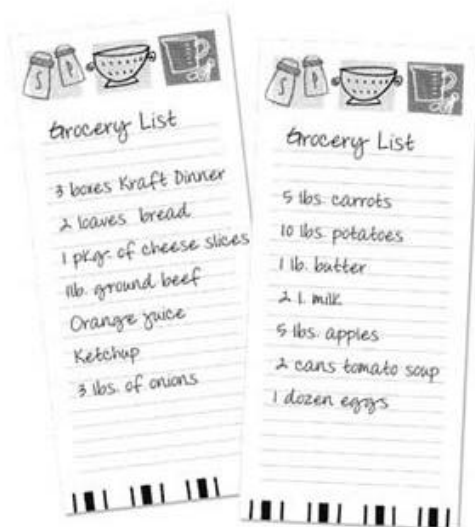 S P
Grocery List
3 boxes Kraft Dinner
2 loaves bread
1 pkg. of cheese slices
1lb. ground beef
Orange juice
Ketchup
3 lbs. of onions
S P
Grocery List
5 lbs. carrots
10 lbs. potatoes
1 lb. butter
2 l. milk
5 lbs. apples
2 cans tomato soup
1 dozen eggs